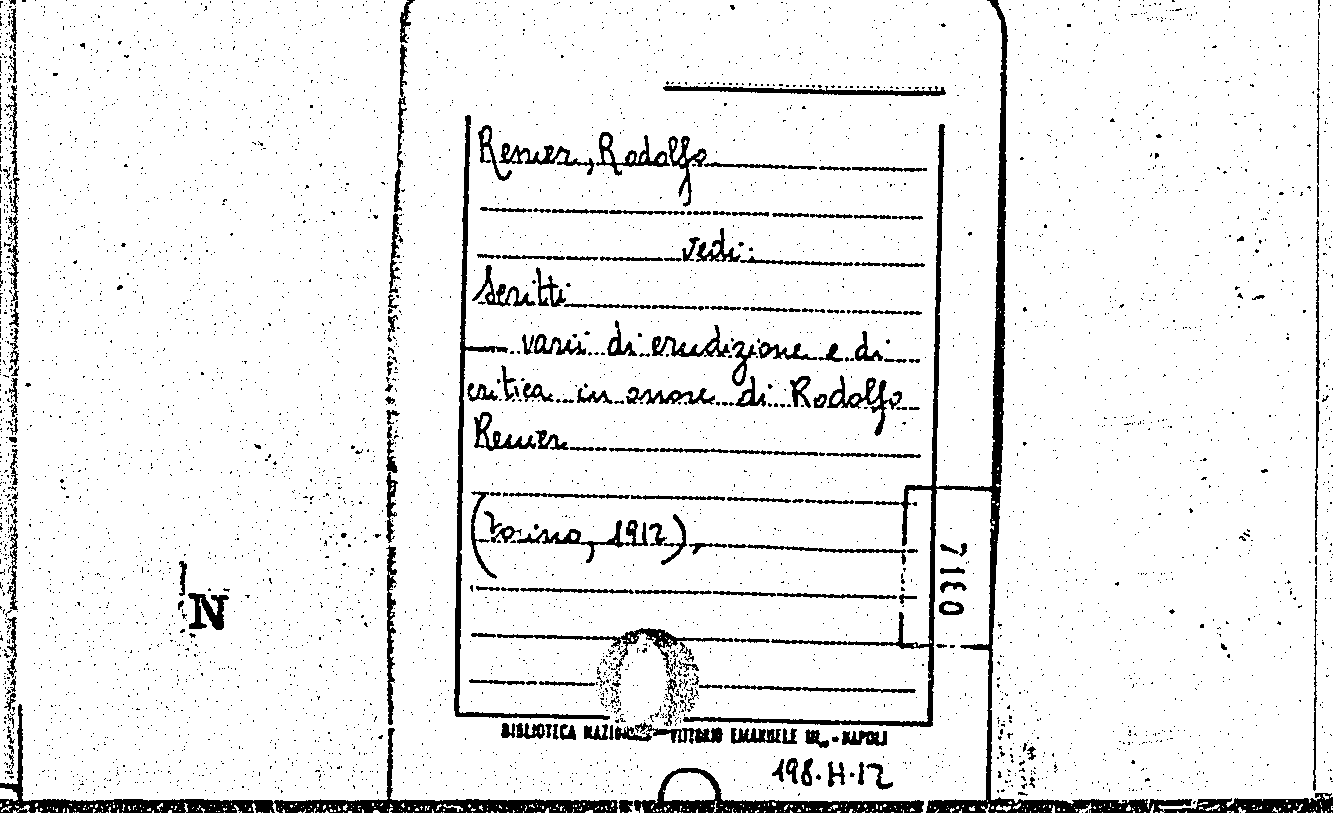 Renier, Rodolfo
vedi:
Scritti
— varii di erudizione e di
critica in onore di Rodolfo
Renier
(Torino, 1912),
0317
N
BIBLIOTECA NAZIONALE VITTORIO EMANUELE III - NAPOLI
198.H.12